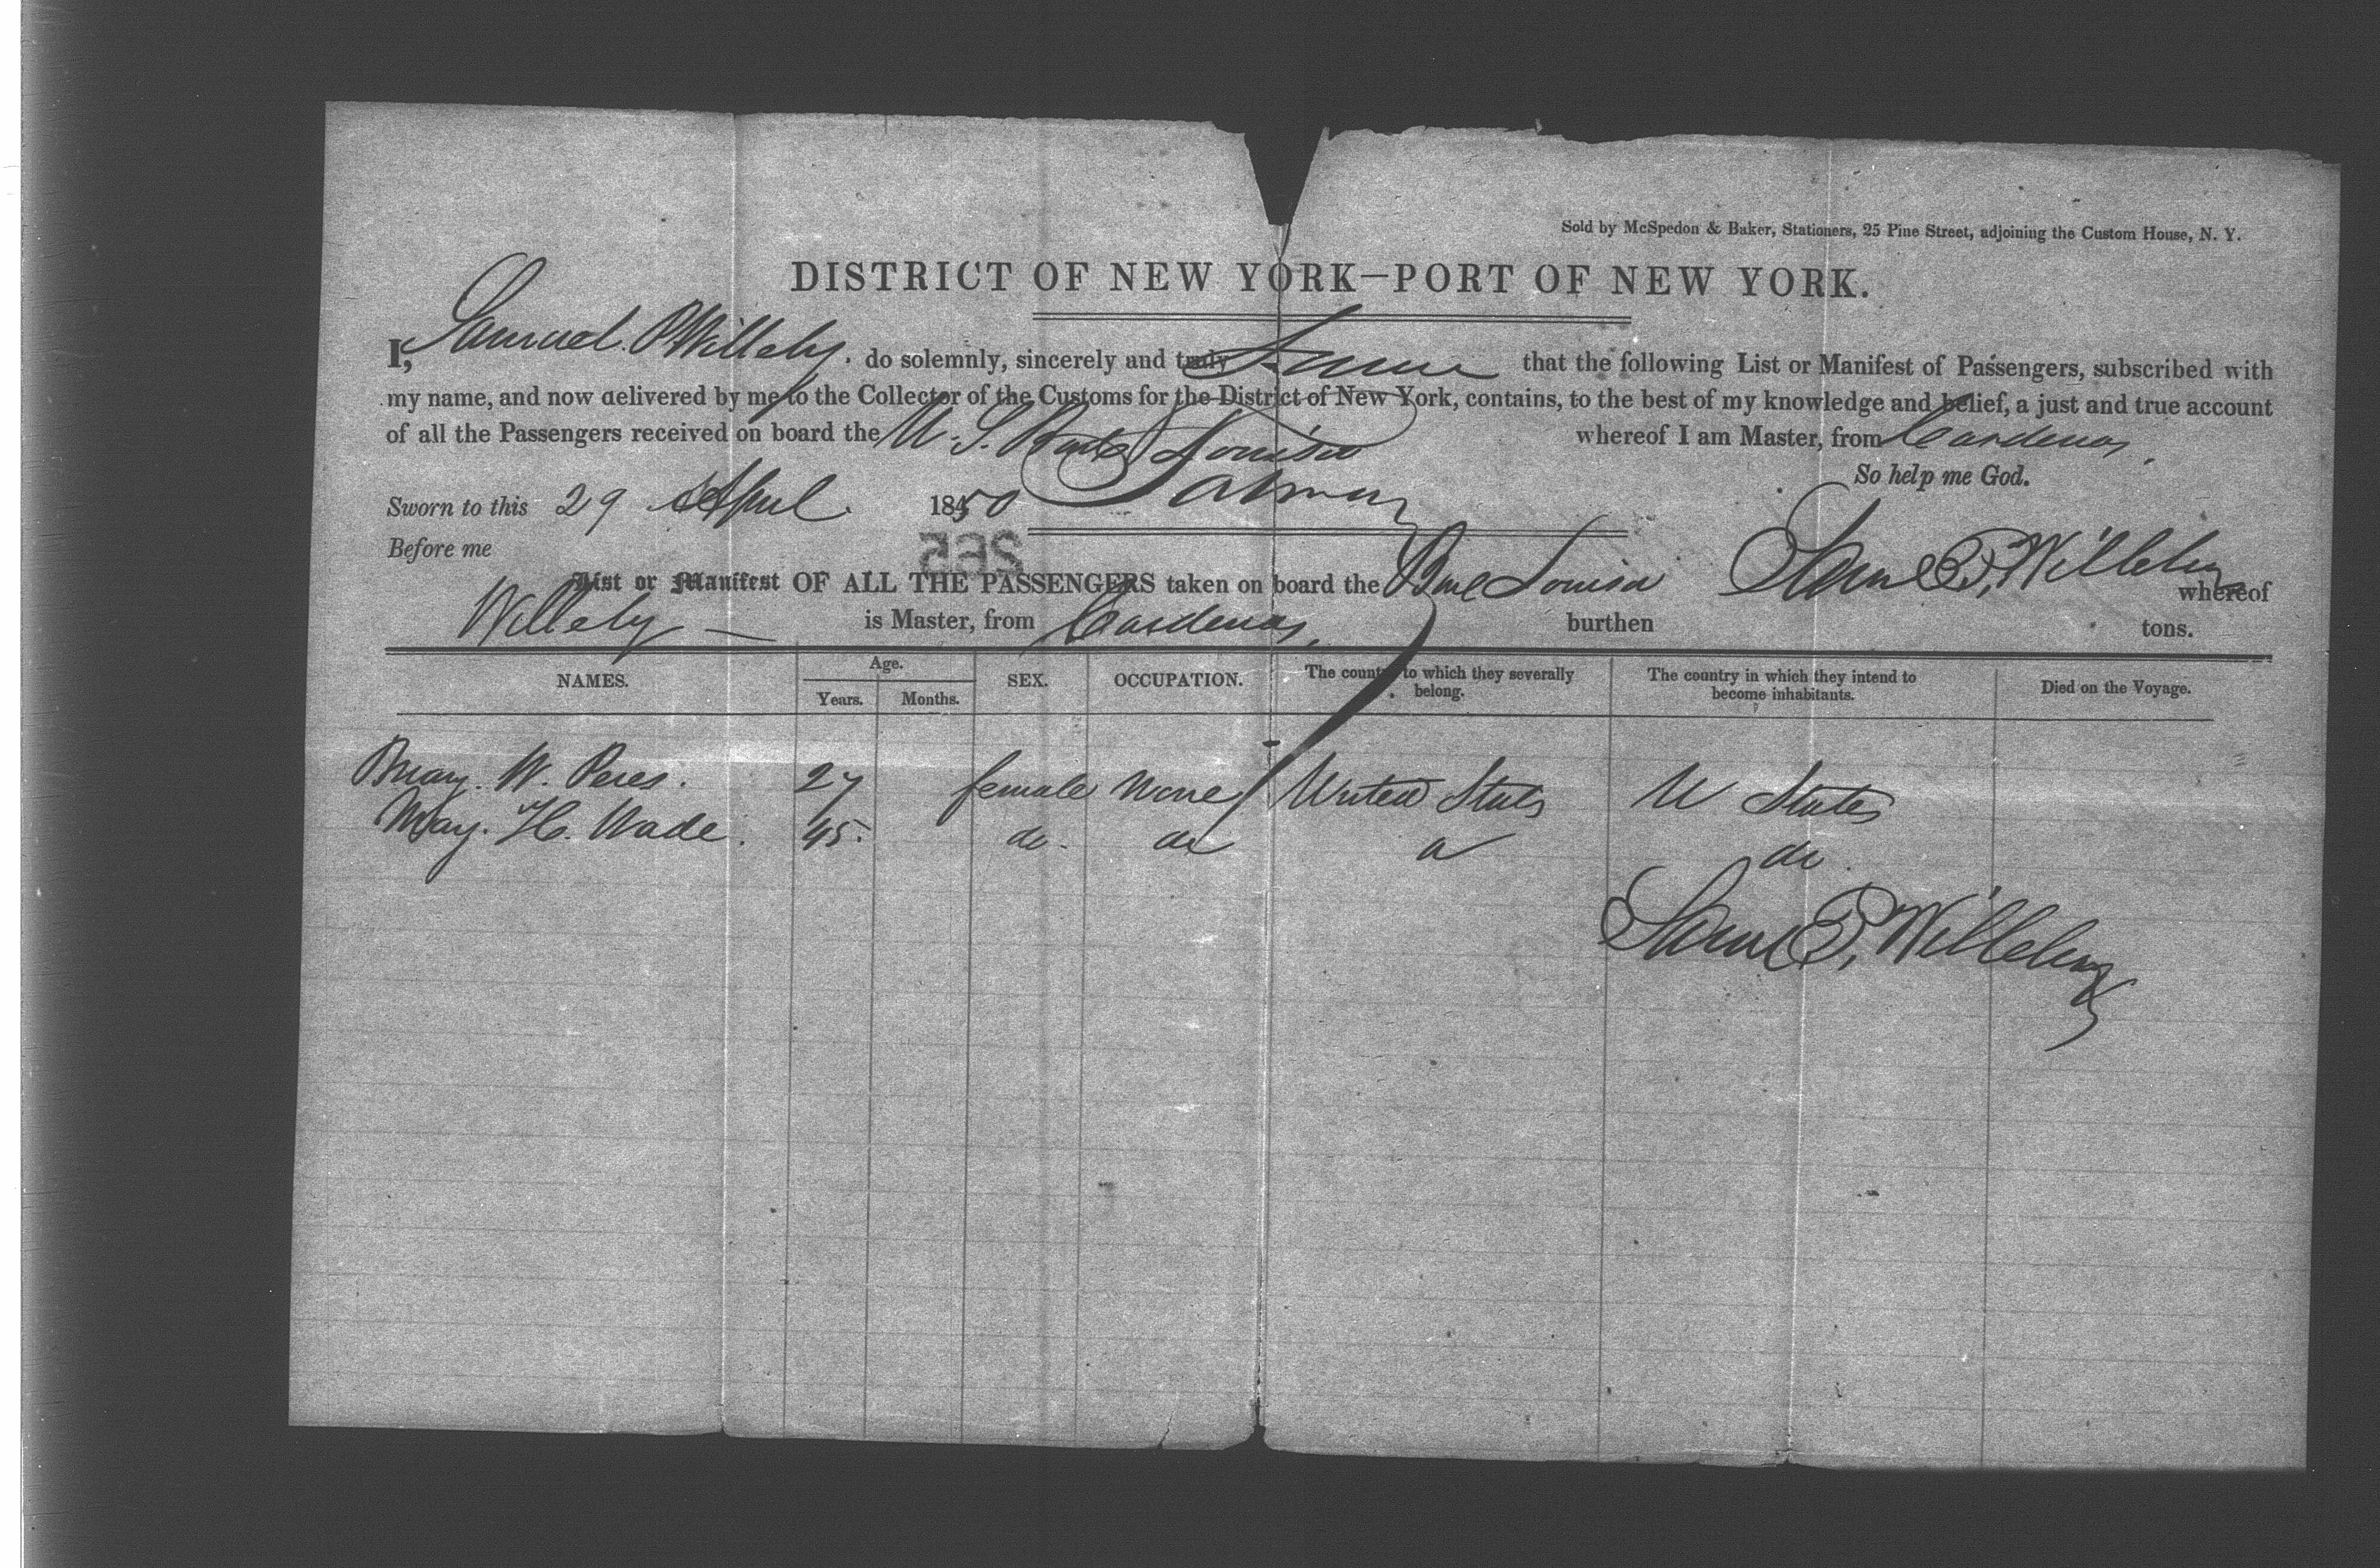 Sold by McSpedon & Baker, Stationers, 25 Pine Street, adjoining the Custom House, N. Y.
DISTRICT OF NEW YORK—PORT OF NEW YORK.
I, Samuel P Willeby. do solemnly, sincerely and truly that the following List or Manifest of Passengers, subscribed with
my name, and now delivered by me to the Collector of the Customs for the District of New York, contains, to the best of my knowledge and belief, a just and true account
of all the Passengers received on board the U. S. Bark Louisa whereof I am Master, from Cardenas.
So help me God.
Sworn to this 29 April 1850
Before me
265
Saml P. Willeby
List or Manifest OF ALL THE PASSENGERS taken on board the Bark Louisa whereof
Willeby — is Master, from Cardenas, burthen tons.
NAMES. Age. SEX. OCCUPATION. The country to which they severally belong. The country in which they intend to become inhabitants. Died on the Voyage.
Years. Months.
Mary. W. Peres. 27 female None United Stats U States
Mary. H. Wade. 45. do. do do do.
Saml P. Willeby